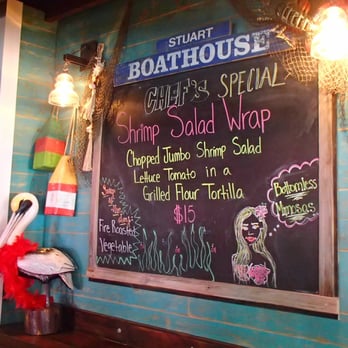 STUART
BOATHOUSE
CHEF'S SPECIAL
Shrimp Salad Wrap
Chopped Jumbo Shrimp Salad
Lettuce Tomato in a
Grilled Flour Tortilla
$15
Bottomless
Mimosas
Fire Roasted
Vegetable